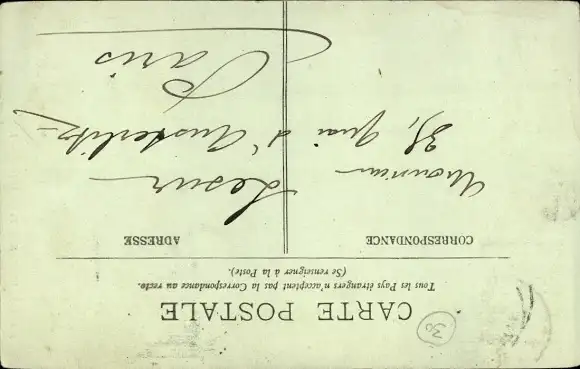 CARTE POSTALE
Tous les Pays étrangers n'acceptent pas la Correspondance au recto.
(Se renseigner à la Poste).
CORRESPONDANCE
ADRESSE
Monsieur Lesur
35, Quai d'Austerlitz
Paris
30